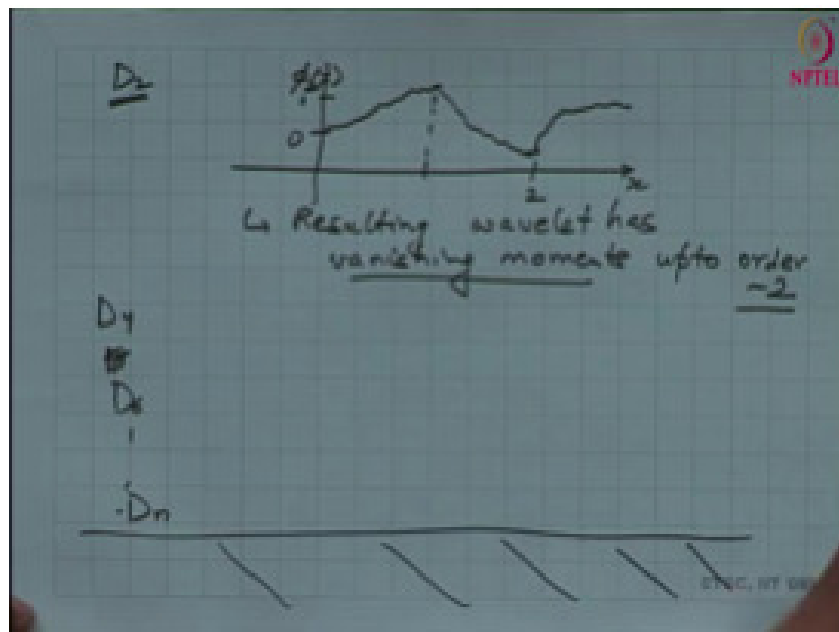 D2
NPTEL
1
0
2
x
↳ Resulting wavelet has
vanishing moments upto order
-2
D4
D6
Dn